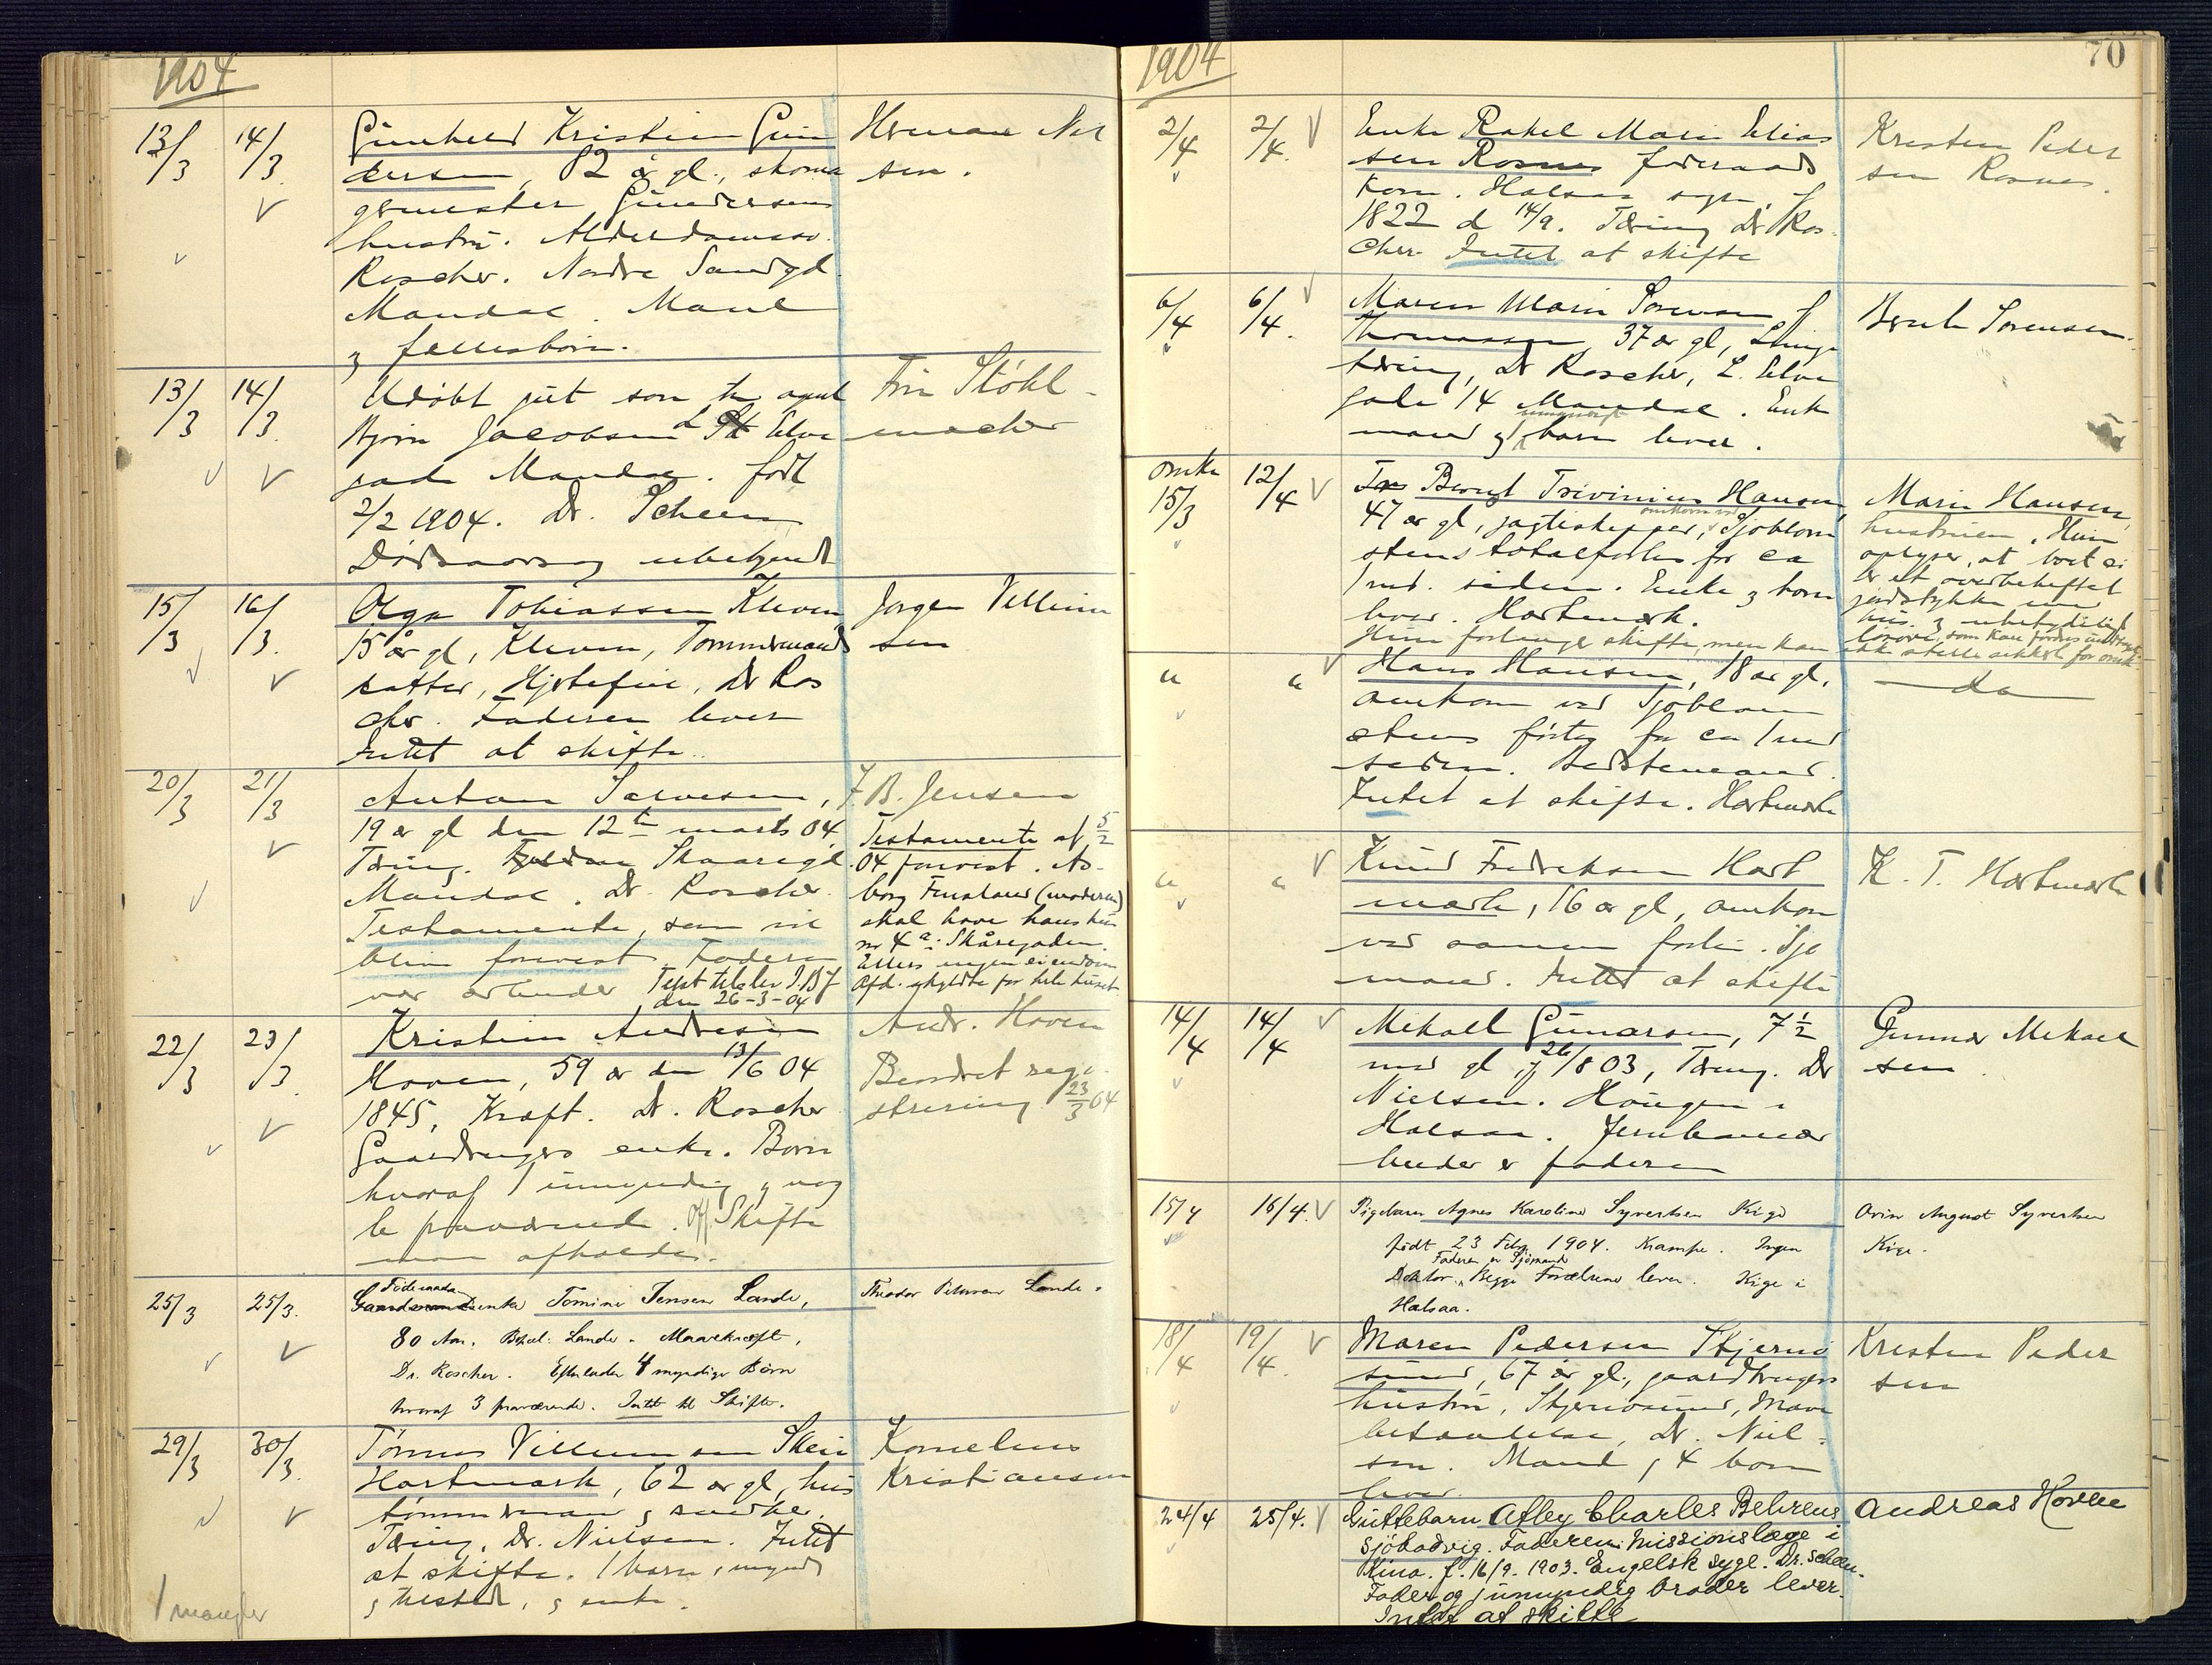 1904
13/3 14/3. Gunhild Kristine Gun
dersen, 82 år gl., skoma
germester Gundersens
hustru. Alderdomssv.
Roscher. Nordre Sandgd.
Mandal. Mand
g fællesbørn.
Herman Niel
sen.
13/3 14/3. Udøbt gut søn th
Bjørn Jacobsen Elve
gade Mandal. født
2/2 1904. Dr. Scheen
Dødsaarsag ubekjendt
Fru Stöhl-
macher
15/3 16/3. Olga Tobiassen Kleven
15 år gl, Kleven, Tømmermands
datter, Hjertefeil, Dr Ros
cher. Faderen lever
Intet at skifte.
Jørgen Vellum
sen
20/3 21/3 Anton Salvesen,
19 år gl den 12te marts 04,
Tæring. Skaaregd.
Mandal. Dr. Roscher.
Testamente, som vil
blive forevist. Faderen
var arbeider Test tilbelev J.B.J
den 26-3-04
J. B. Jensen
Testamente af 5/2
04 forevist. As-
borg Fuglland (moderen)
skal have hans hus
nr 4 a. Skåregaden.
Ellers ingen eiendom
Afd. skyldte for hele huset
22/3 23/3. Kristine Andresen
Hoven, 59 år den 13/6 04
1845, Kræft. Dr. Roscher
Gaardbrugers enke. Børn
hvoraf 1 umyndig, nog
le fraværende. Off. Skifte
maa afholdes.
Andr. Hoven
Beordret regi-
strering 23/3 04
25/3 25/3. Føderaads
Gaardmandsenke Tomine Jensen Lande,
80 Aar. Bopæl: Lande. Mavekræft,
Dr. Roscher. Efterlader 4 myndige Børn
hvoraf 3 fraværende. Intet til Skifte.
Theodor Petersen Lande.
29/3 30/3. Tønnes Villumsen Skei
Hartmark, 62 år gl, hus
tømmerman g snedker.
Tæring. Dr. Nielsen. Intet
at skifte. 1 barn, myndg
g tilsted, g enke.
Kornelius
Kristiansen
1 mangler
1904
70
2/4 2/4. Enke Rakel Marie Elias
sen Rosnes føderaads
kone. Halsaa sogn, f
1822 d 14/9. Tæring Dr Ros-
cher. Intet at skifte
Kristen Peder
sen Rosnes.
6/4 6/4. Maren Marie Sørensen f.
Thomassen, 37 år gl, Lunge
tæring, Dr Roscher, L. Elve
gade 14 Mandal. Enke
mand g 1 umyndigt barn lever.
Bernh Sørensen.
omtr
15/3 12/4 Bernt Trivinius Hansen,
47 år gl, jagtskipper, omkom ved "Sjøblom
stens totalforlis for ca
1 md. siden. Enke g børn
lever. Hartmark.
Hun forlanger skifte, men kan ikke stille sikkerh for omk
Marie Hansen,
hustruen. Hun
oplyser, at boet ei
er et overbeheftet
jordstykke med
hus g ubetydeligt
løsøre, som kan fordres
" " Hans Hansen, 18 år gl,
omkom ved Sjøblom
stens forlis for ca 1 md
siden. Bedstemand.
Intet at skifte. Hartmark
do
" " Knud Fredriksen Hart
mark, 16 år gl, omkom
ved samme forlis. Sjø
mand. Intet at skifte
K. T. Hartmark
14/4 14/4 Mikael Gunarsen, 7 1/2
md gl, f 26/8 03, Tæring. Dr
Nielsen. Haugen i
Halsaa. Jernbanear
beider er faderen
Gunnar Mikael
sen
15/4 16/4. Pigebarn Agnes Karoline Syvertsen Kige
født 23 Febr 1904. Krampe. Ingen
Faderen er Sjømand
Doktor, Begge Forældrene lever. Kige i
Halsaa.
Ovin August Syvertsen
Kige.
18/4 19/4. Maren Pedersen Skjerne
sund, 67 år gl, gaardbrugers
hustru, Skjernøsund, Mave
betændelse, Dr. Niel-
sen. Mand, 4 børn
lever.
Kristen Peder
sen
24/4 25/4. Guttebarn Atley Charles Behrens
Sjöbodvig. Faderen missionslæge i
Kina. f. 16/9. 1903. Engelsk syge. Dr. Scheen.
Fader og 1 umyndig broder lever.
Intet at skifte
Andreas Hovne